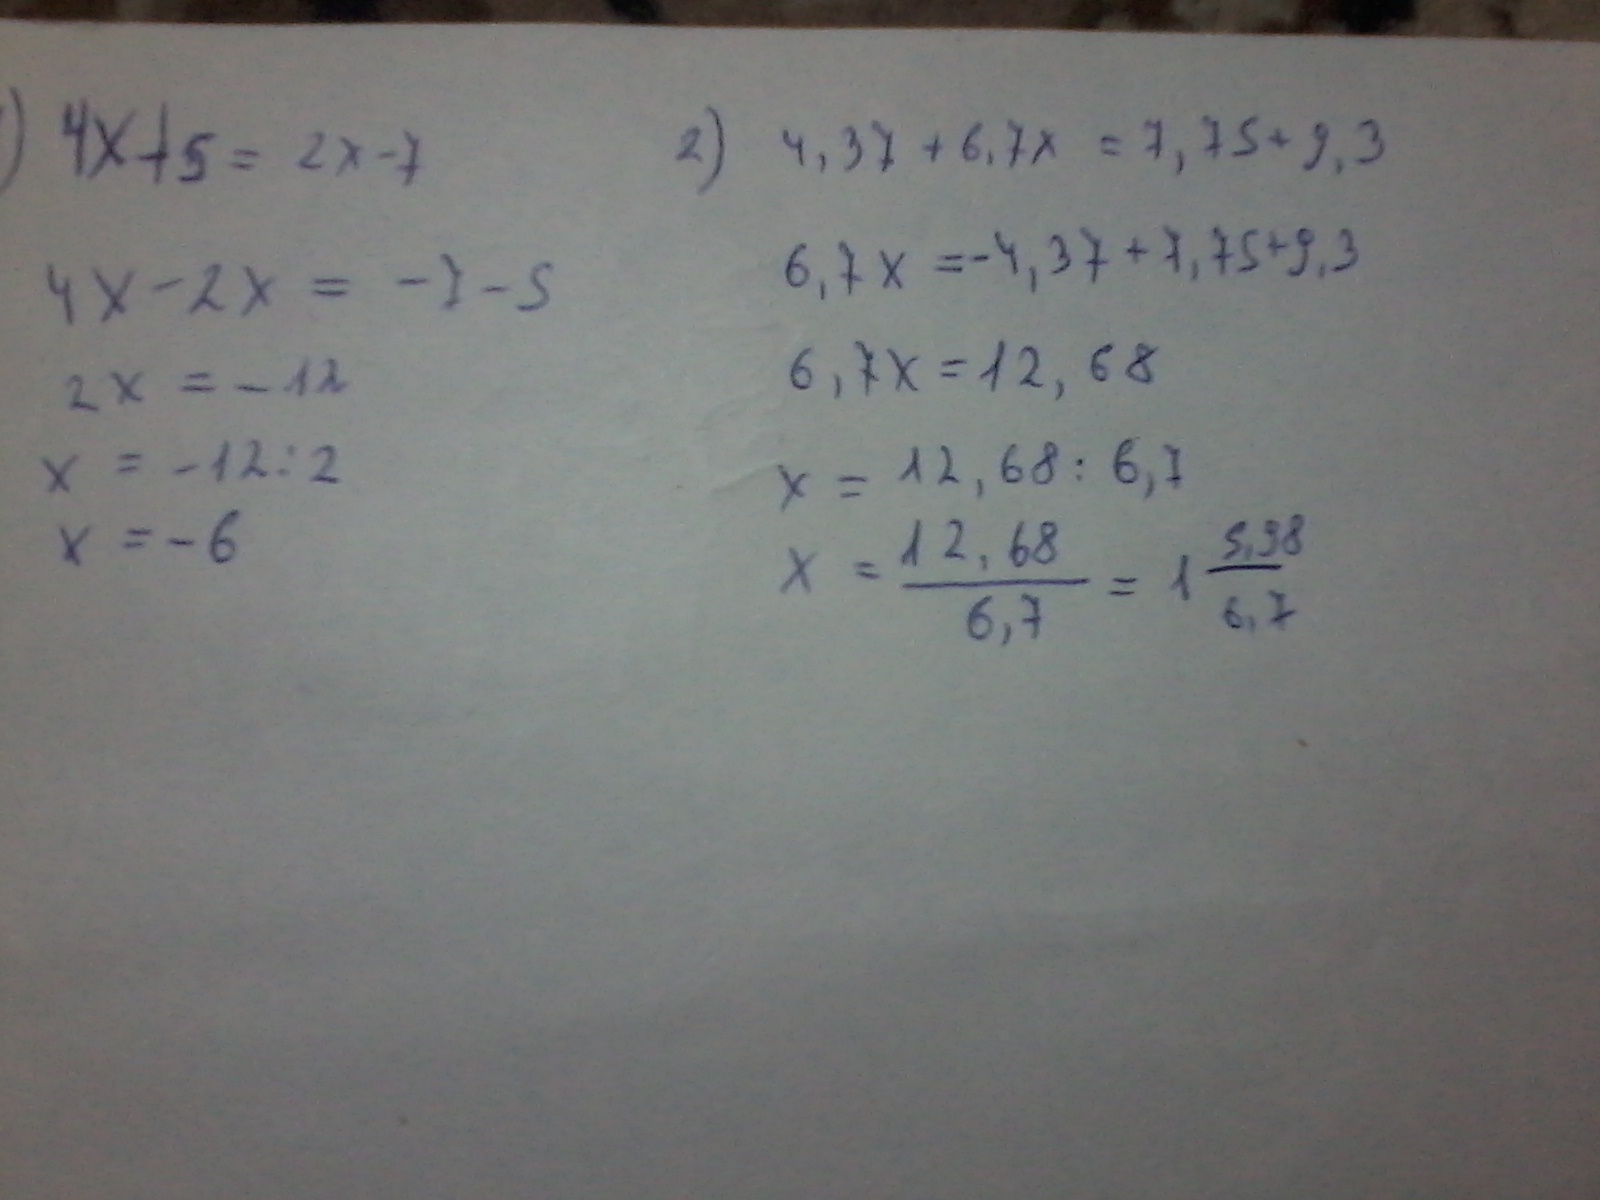 ) 4x+5 = 2x-7
4x-2x = -7-5
2x = -12
x = -12:2
x = -6
2) 4,37+6,7x = 7,75+9,3
6,7x =-4,37+7,75+9,3
6,7x=12,68
x = 12,68:6,7
x = 12,68/6,7 = 1 5,98/6,7